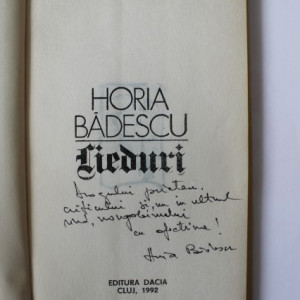 HORIA
BĂDESCU
Lieduri
prieten,
criticului și, nu în ultimul
rînd,
cu afectiune!
Horia Bădescu
EDITURA DACIA
CLUJ, 1992